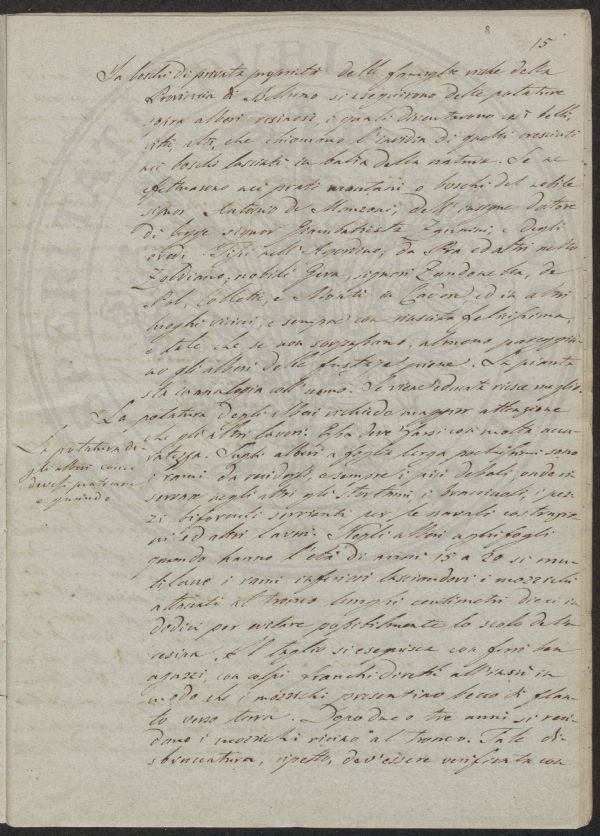 8
15
In boschi di privata proprietà delle famiglie nobili della
Provincia di Belluno si eseguirono delle potature
sopra alberi resinosi, i quali diventarono così belli,
retti, alti, che chiamano l'invidia di quelli cresciuti
nei boschi lasciati in balia della natura. Se ne
effettuarono nei prati montani o boschi del nobile
signor Antonio de Manzoni, dell'insigne dottore
di legge signor Giambattista e degli
eredi Tissi nell'Agordino; da Pra ed altri nello
Zoldiano; nobili Gera, signori Zandonella, de
Pol, Coletti, e Vivanti in Cadore, ed in altri
luoghi vicini, e sempre con riuscita felicissima,
e tale che se non sorpassano, almeno pareggia-
no gli alberi delle fustaje giovani. La pianta
sta in analogia coll'uomo. Se viene educata riesce meglio.
La potatura degli alberi richiede maggior attenzione
che gli altri lavori. Essa deve farsi con molta accu-
ratezza. Sugli alberi a foglia larga pochissimi sono
i rami da recidersi, e sempre i più deboli, onde con-
servare negli altri gli stortami, i bracciuoli, i pez-
zi biforcuti servienti per le navali costruzio-
ni ed altri lavori. Negli alberi aghifogli
quando hanno l'età di anni 15 a 20 si muti-
lano i rami inferiori lasciandovi i mozzichi
attaccati al tronco lunghi centimetri dieci in
dodici per evitare possibilmente lo scolo della
resina. Il taglio si eseguisca con ferri ben
aguzzi, con colpi franchi diretti all'insù in
modo che i mozzichi presentino becco di flau-
to verso terra. Dopo due o tre anni si reci-
dono i mozzichi vicino al tronco. Tale di-
sbruccatura, ripeto, dev'essere verificata con
La potatura de-
gli alberi come
devesi praticare
e quando